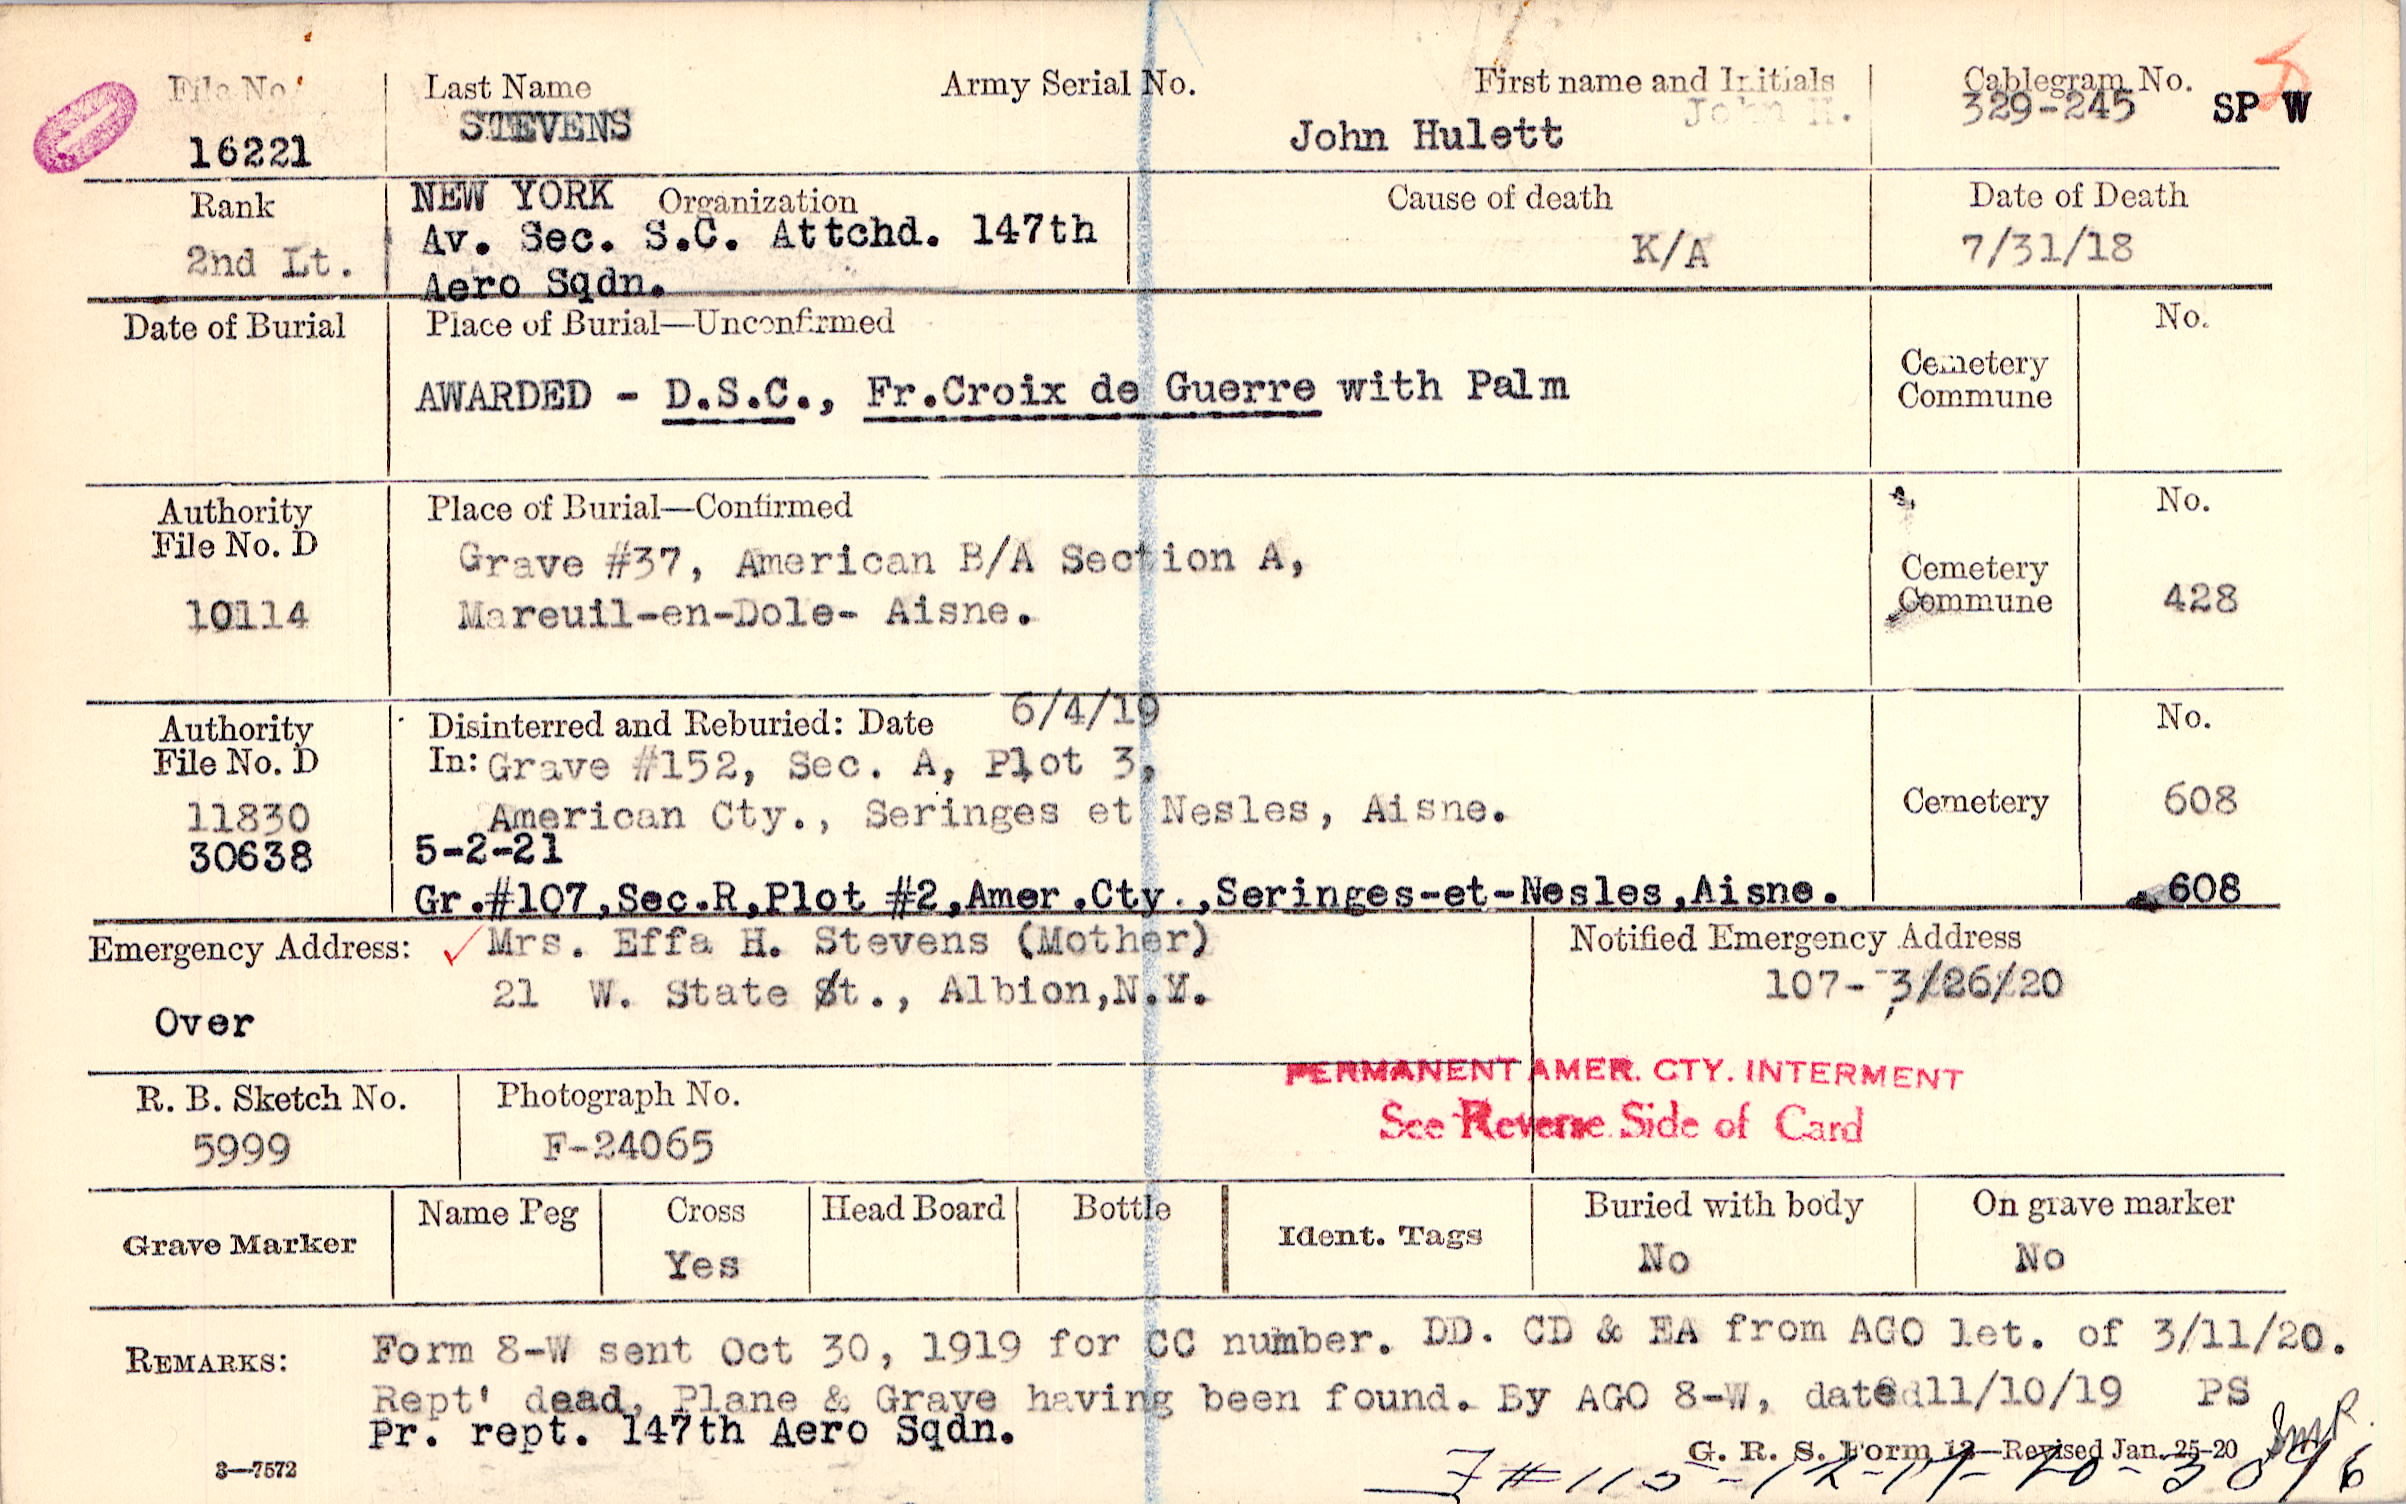 File No. Last Name Army Serial No. First name and Initials Cablegram No.
16221 STEVENS John H. 329-245 SP W
John Hulett
Rank NEW YORK Organization Cause of death Date of Death
2nd Lt. Av. Sec. S.C. Attchd. 147th K/A 7/31/18
Aero Sqdn.
Date of Burial Place of Burial—Unconfirmed No.
Cemetery
AWARDED - D.S.C., Fr.Croix de Guerre with Palm Commune
Authority Place of Burial—Confirmed No.
File No. D
Grave #37, American B/A Section A, Cemetery
10114 Mareuil-en-Dole- Aisne. Commune 428
Authority Disinterred and Reburied: Date 6/4/19 No.
File No. D In: Grave #152, Sec. A, Plot 3,
11830 American Cty., Seringes et Nesles, Aisne. Cemetery 608
30638 5-2-21
Gr.#107,Sec.R,Plot #2,Amer.Cty.,Seringes-et-Nesles,Aisne. 608
Emergency Address: Mrs. Effa H. Stevens (Mother) Notified Emergency Address
21 W. State St., Albion,N.Y. 107- 3/26/20
Over
PERMANENT AMER. CTY. INTERMENT
R. B. Sketch No. Photograph No. See Reverse Side of Card
5999 F-24065
Grave Marker Name Peg Cross Head Board Bottle Ident. Tags Buried with body On grave marker
Yes No No
REMARKS: Form 8-W sent Oct 30, 1919 for CC number. DD. CD & EA from AGO let. of 3/11/20.
Rept' dead, Plane & Grave having been found. By AGO 8-W, dated 11/10/19 PS
Pr. rept. 147th Aero Sqdn.
3—7572 G. R. S. Form 12—Revised Jan. 25-20